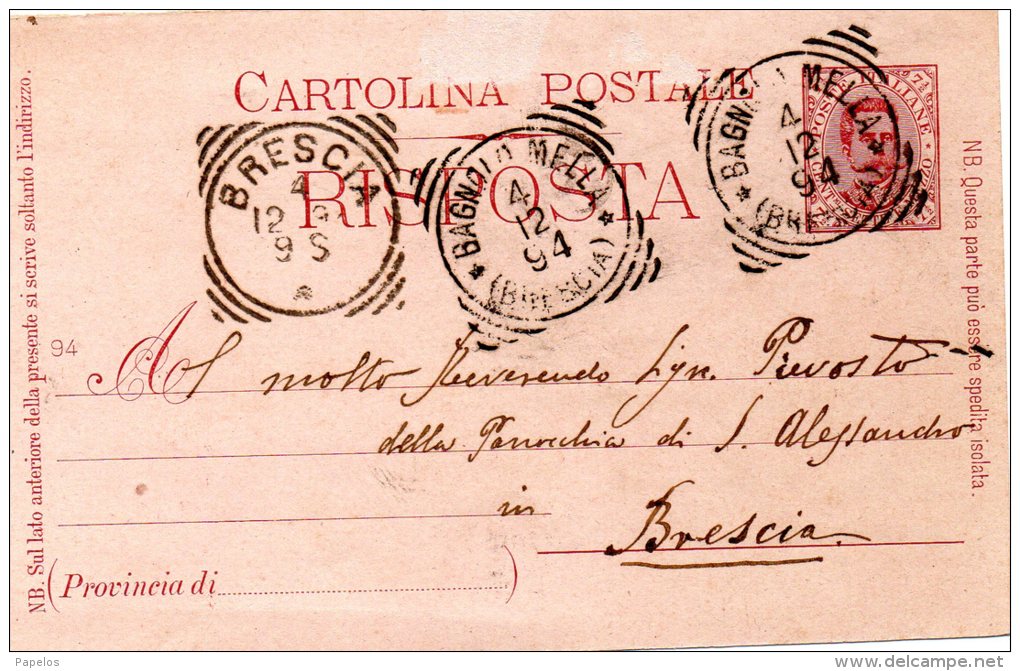 CARTOLINA POSTALE
RISPOSTA
POSTE ITALIANE
BRESCIA
4
12
9 S
BAGNOLO MELLA
4
12
94
(BRESCIA)
BAGNOLO MELLA
4
12
94
(BRESCIA)
94
Al molto Reverendo Sign. Prevosto
della Parrocchia di S. Alessandro
in
Brescia
(Provincia di )
NB. Sul lato anteriore della presente si scrive soltanto l'indirizzo.
NB. Questa parte può essere spedita isolata.
Papelos
www.delcampe.net